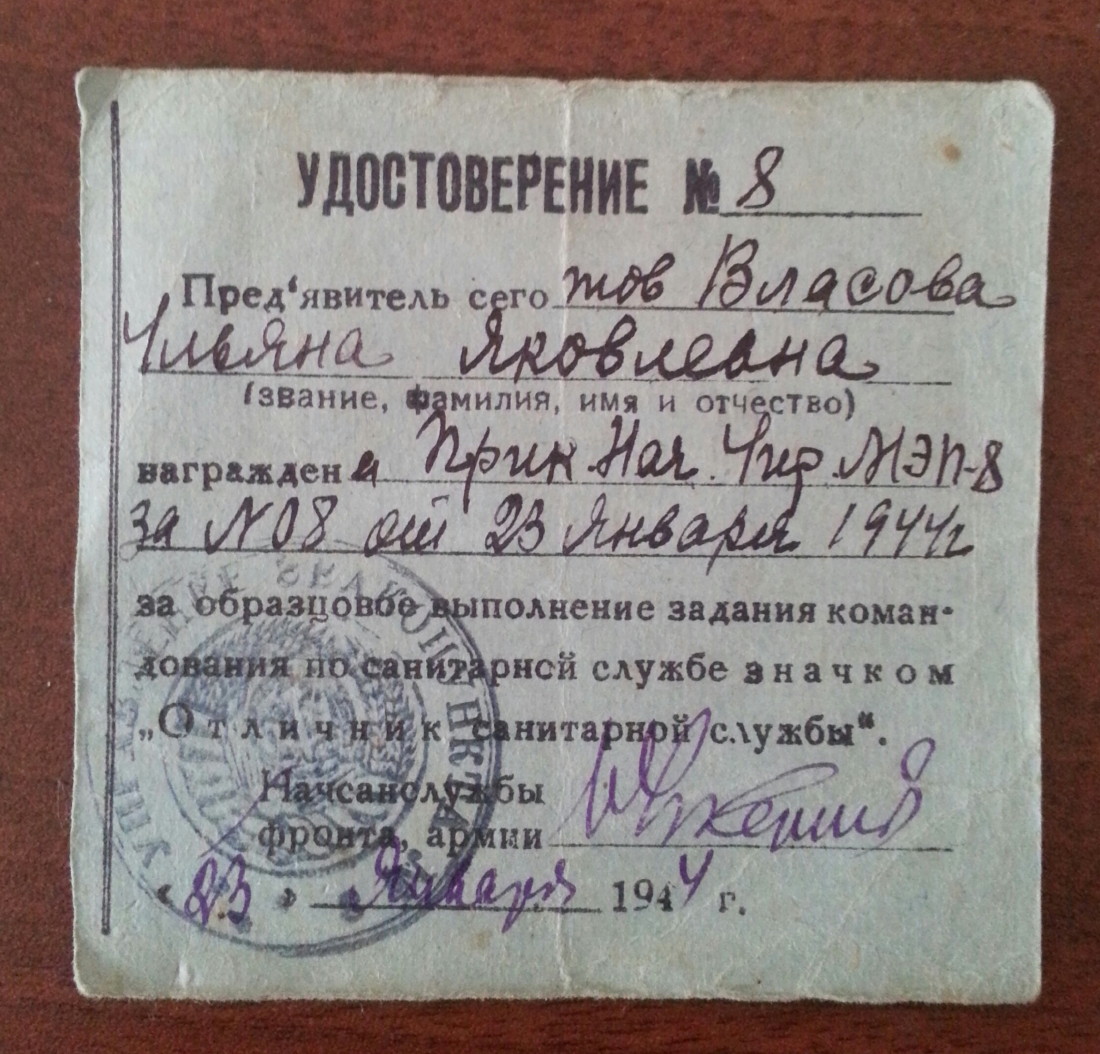 УДОСТОВЕРЕНИЕ № 8
Пред'явитель сего тов Власова
Ульяна Яковлевна
(звание, фамилия, имя и отчество)
награжден а Прик Нач. Упр МЭП-8
за №08 от 23 Января 1944г
за образцовое выполнение задания коман-
дования по санитарной службе значком
„Отличник санитарной службы“.
Начсанслужбы
фронта, армии
"23" Января 1944 г.